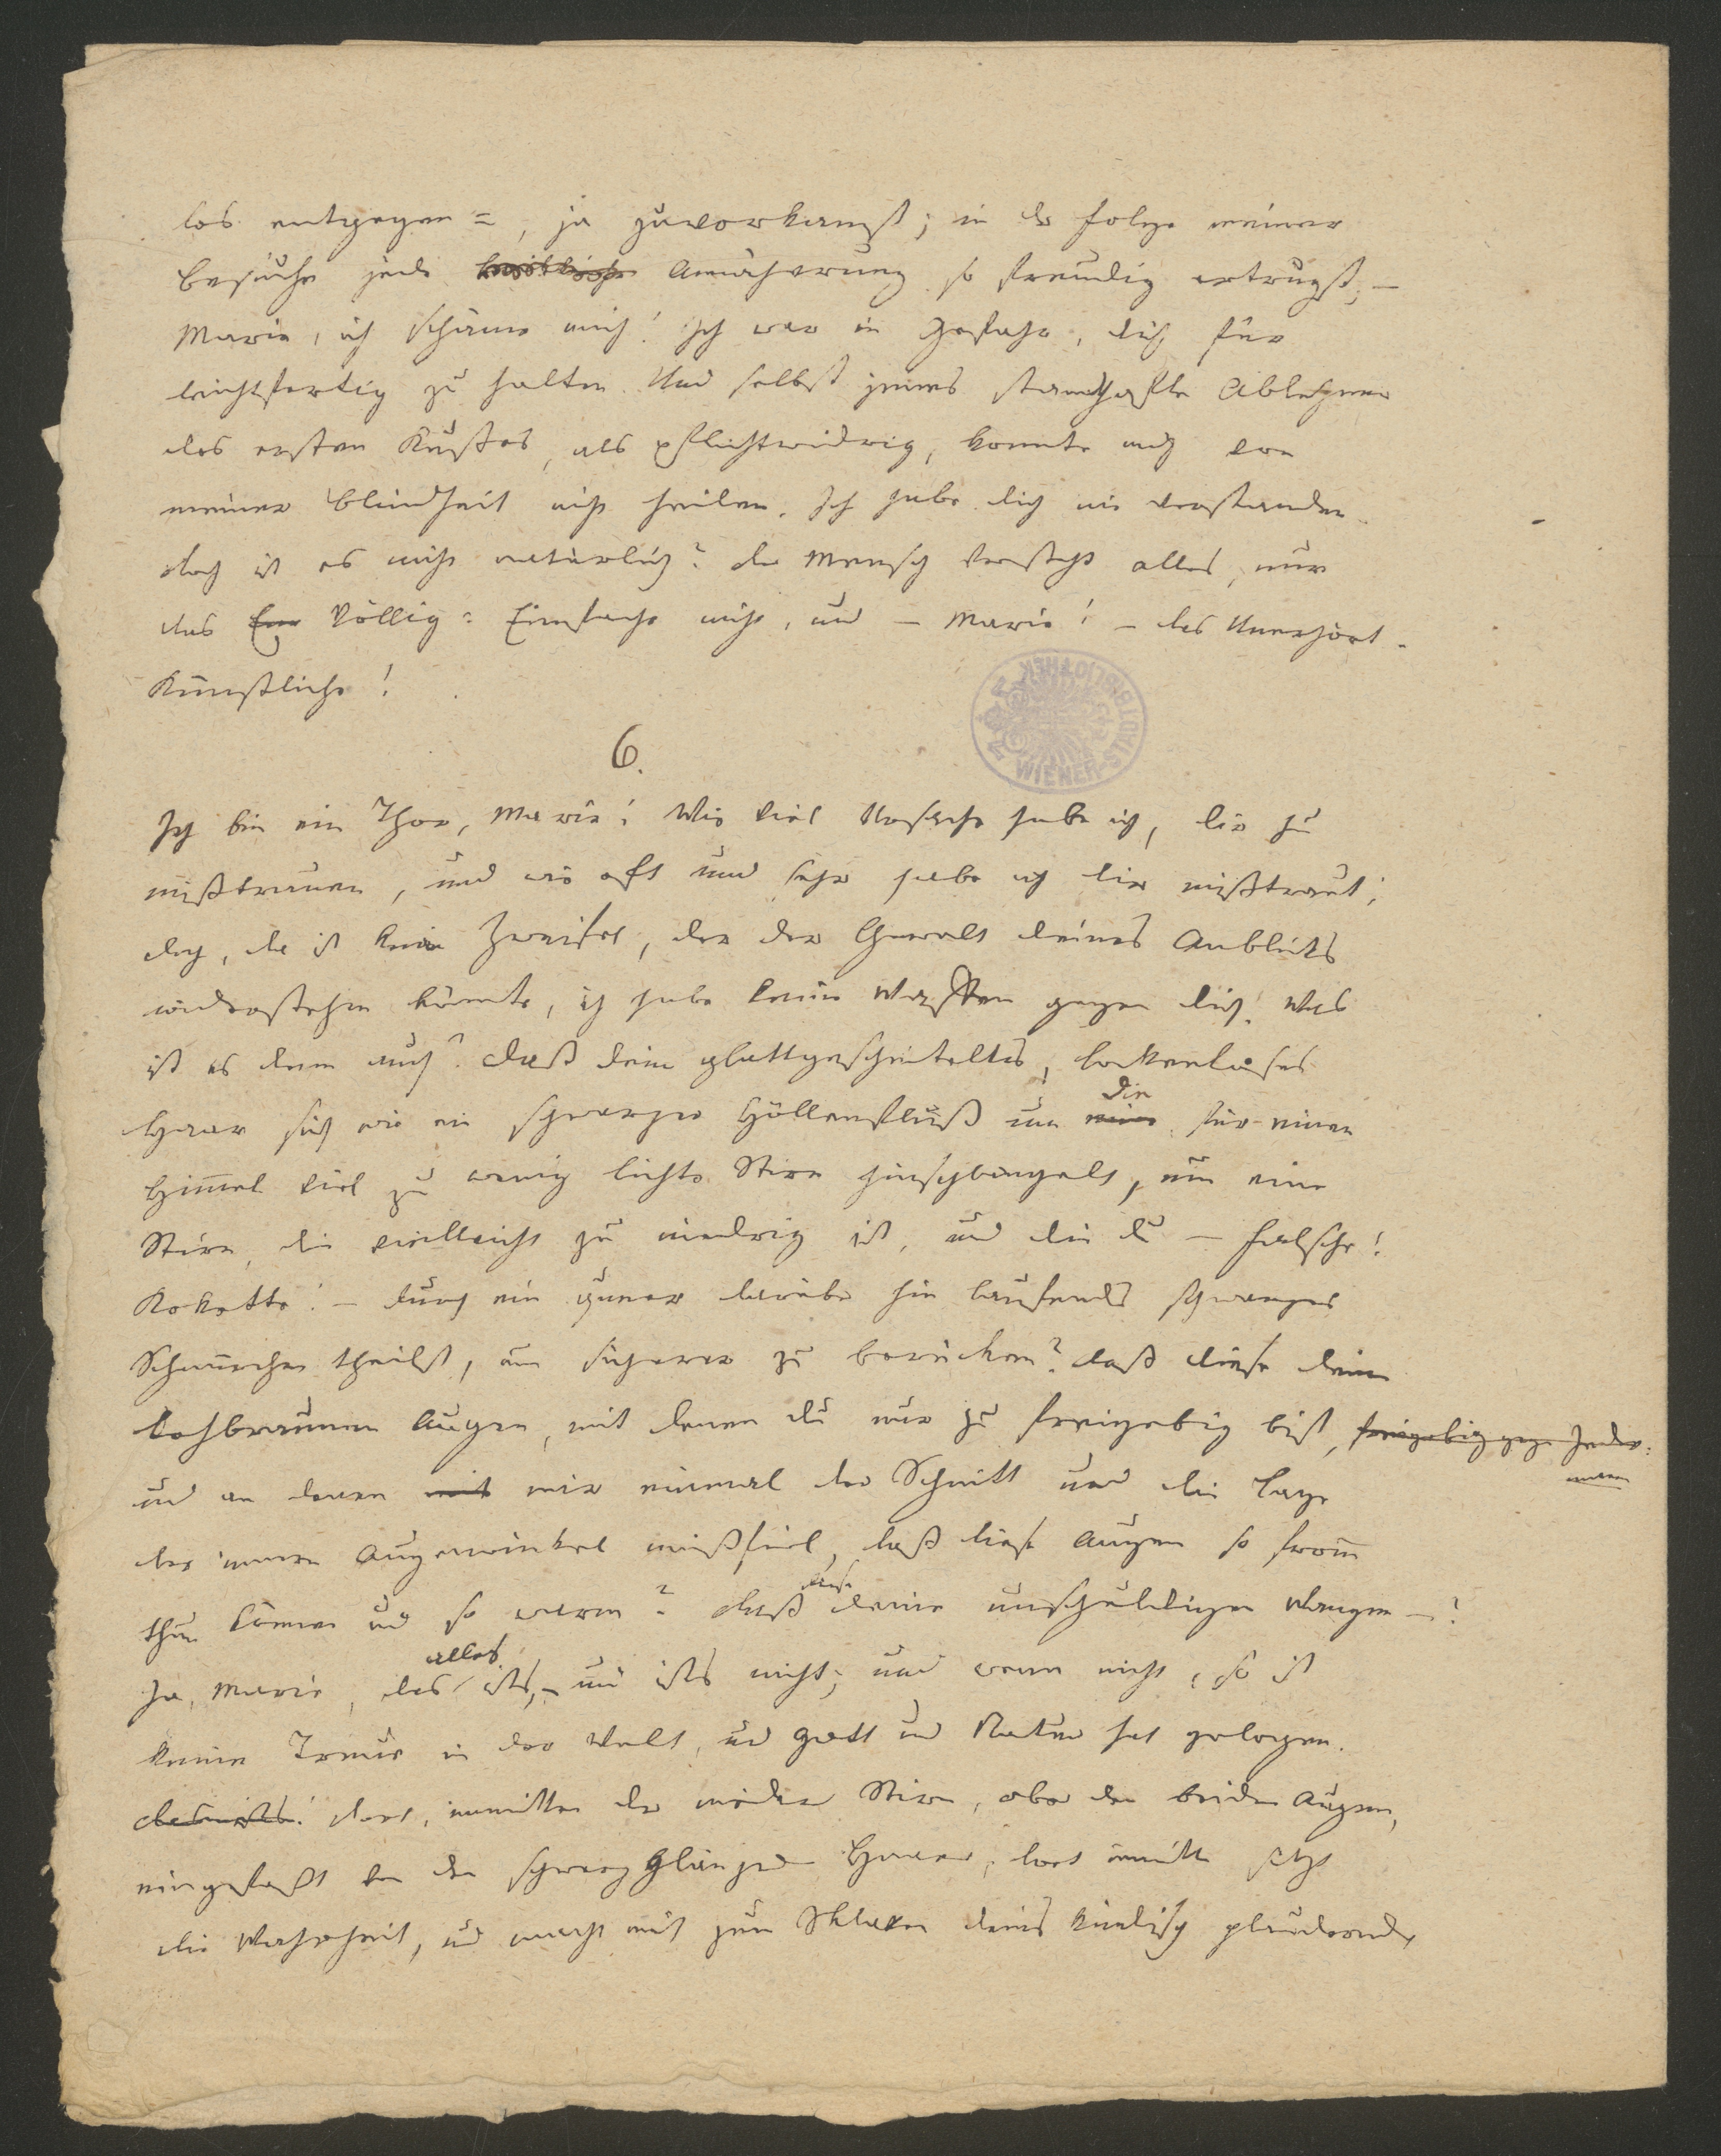 los entgegen =, ja zuvorkamst; in der Folge meiner
Besuche jede Annäherung so freudig ertrugst, —
Marie, ich schäme mich! Ich war in Gefahr, dich für
leichtfertig zu halten. Und selbst jenes standhafte Ablehnen
des ersten Kußes, als pflichtwidrig, konnte mich von
meiner Blindheit nicht heilen. Ich habe dich nie verstanden.
doch ist es nicht natürlich? der Mensch versteht alles, nur
das Ein Völlig= Einfache nicht, und — Marie! — das Unerhört-
Künstliche!
WIENER STADTBIBLIOTHEK
6.
Ich bin ein Thor, Marie! Wie viel Ursache habe ich, dir zu
mißtrauen, und wie oft und sehr habe ich dir mißtraut;
doch, da ist kein Zweifel, der der Gewalt deines Anblicks
widerstehen könnte, ich habe keine Waffen gegen dich! Was
ist es denn auch? daß dein glattgescheiteltes, lockenloses
Haar sich wie ein schwarzer Höllenfluß um eine die für einen
Himmel viel zu wenig lichte Stirn hinschlängelt, um eine
Stirn, die vielleicht zu niedrig ist, und die du — Falsche!
Kokette! — durch ein quer darüber hin laufendes schwarzes
Schnürchen theilst, um sicherer zu berücken? daß diese deine
lohbraunen Augen, mit denen du nur zu freigebig bist, freigebig gegen Jeder-
mann
und an denen mit mir einmal der Schnitt und die Lage
der innern Augenwinkel mißfiel, daß diese Augen so from̅
thun können und so warm? daß diese deine unschuldigen Wangen —?
Ja, Marie, das alles ists, — und ists nicht; und wenn nicht, so ist
keine Treue in der Welt, und Gott und Natur hat gelogen.
das ists! dort, inmitten der niedern Stirn, ober den beiden Augen,
eingefaßt von den schwarz glänzenden Haaren, dort inmitten sitzt
die Wahrheit, und macht mich zum Sklaven deines kindisch plaudernden